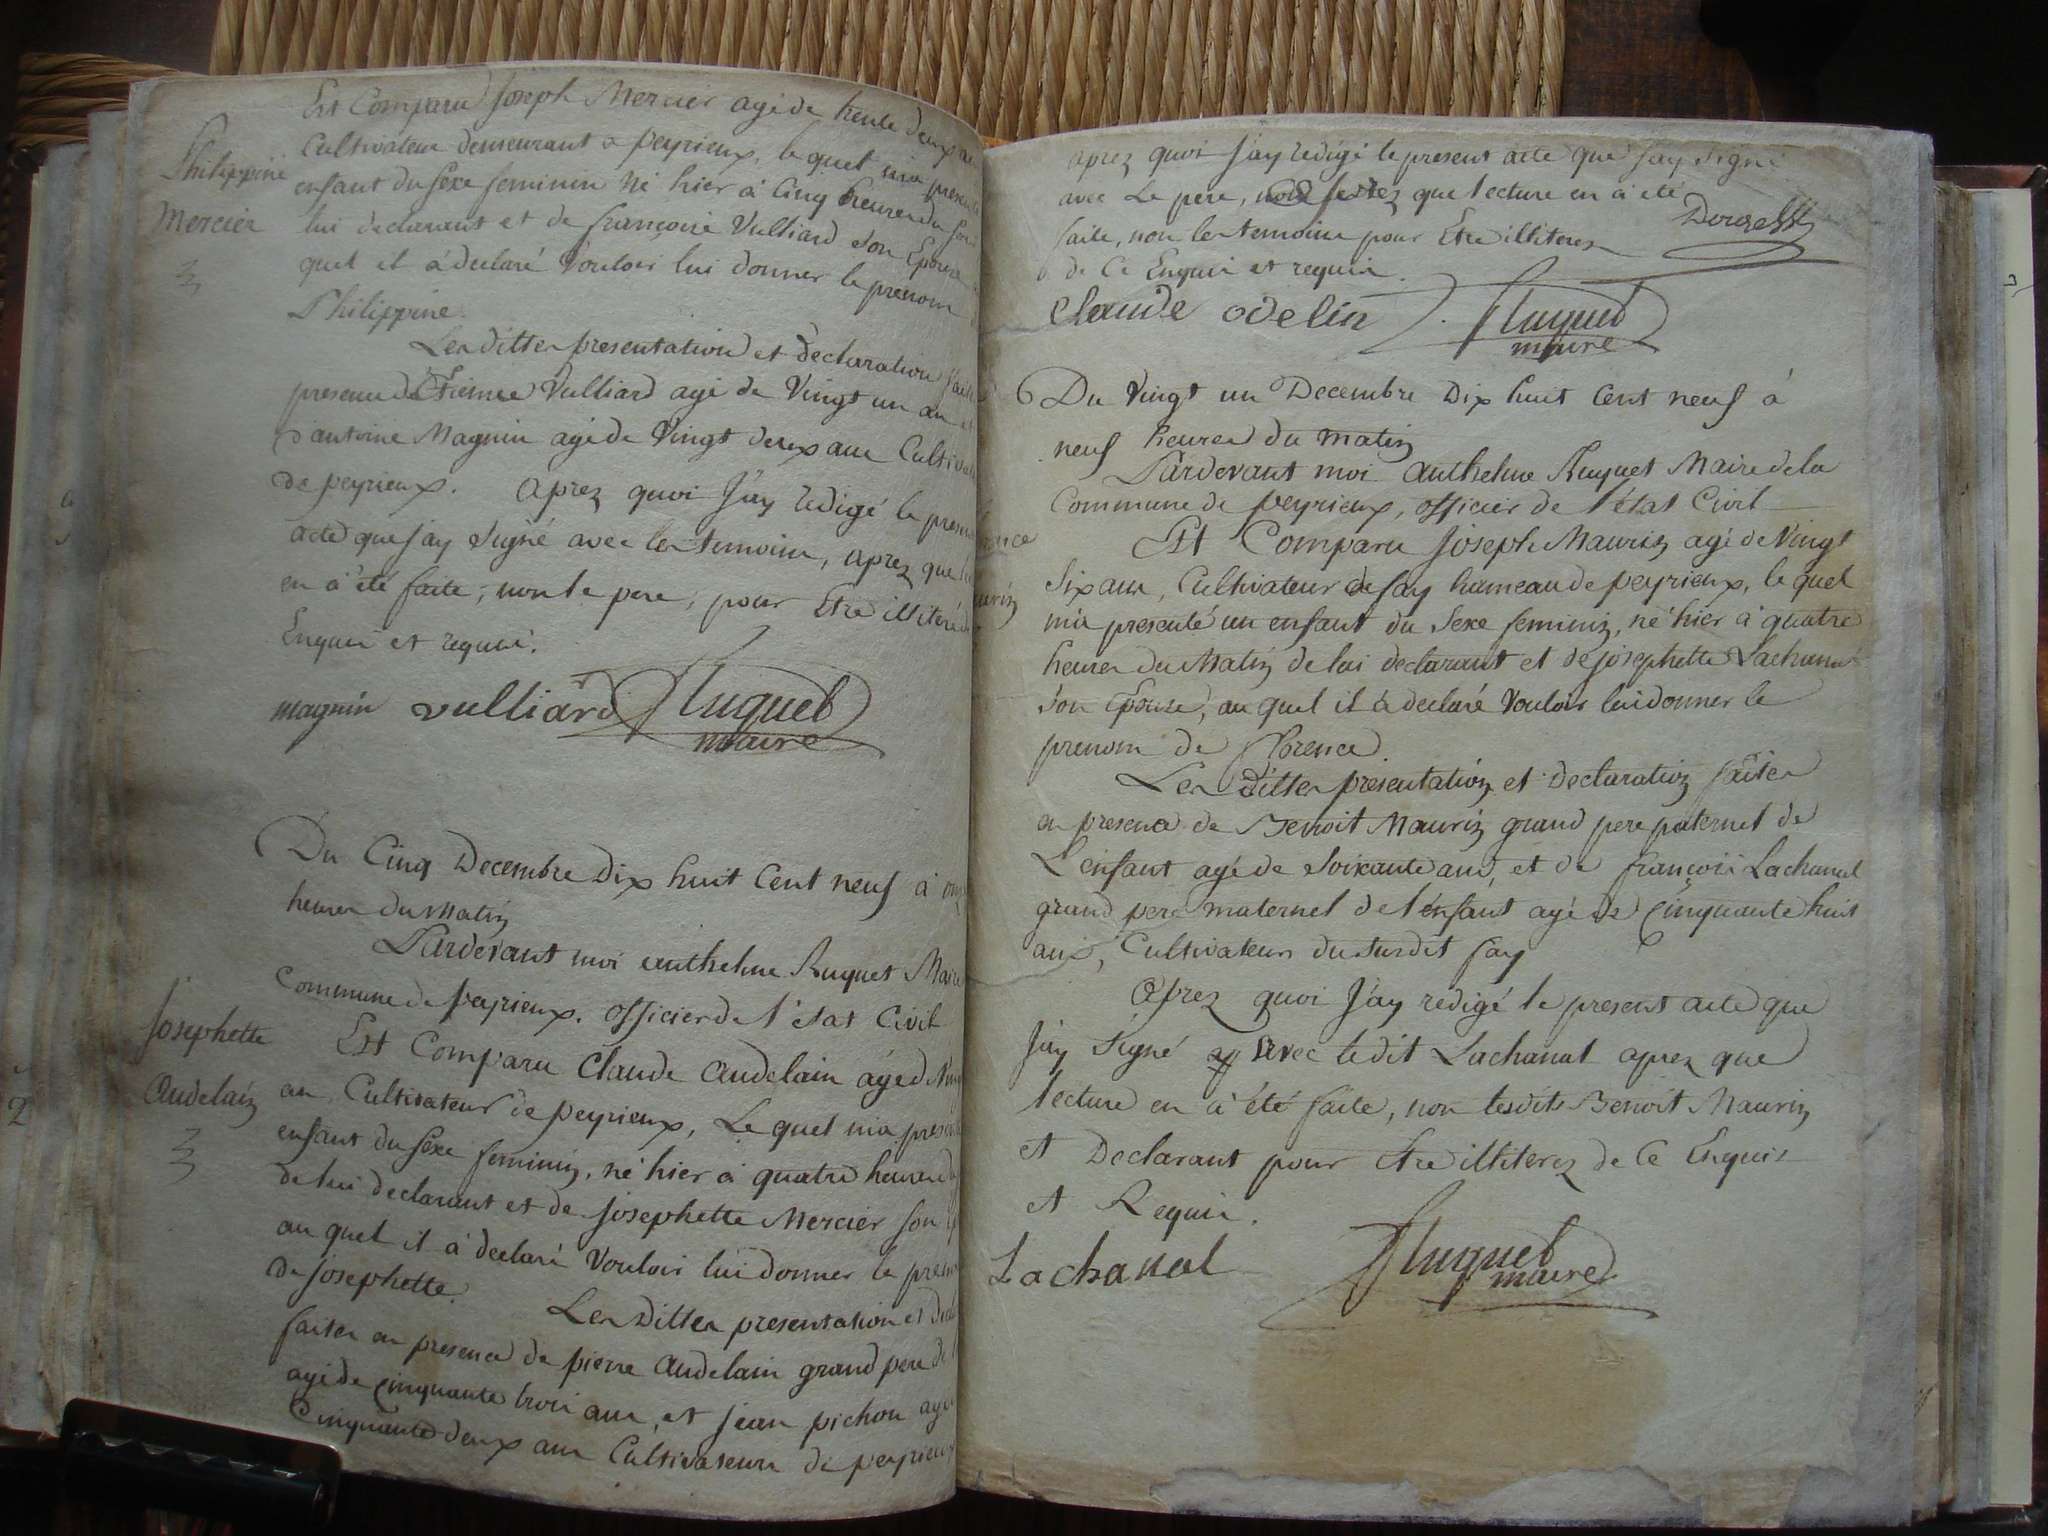 Est Comparu Joseph Mercier agé de trente deux
Cultivateur demeurant a peyrieux, le quel m'a presenté
Philippine
enfant du sexe feminin né hier à Cinq heures du soir
Mercier
lui declarant et de françoise Vulliard son Epouse
quel il à declaré Vouloir lui donner le prenom
Philippine.
Les dittes presentation et declaration faites
presence d'Etienne Vulliard agé de Vingt un an et
d'antoine Magnin agé de Vingt deux ans Cultivat
de peyrieux. Aprez quoi J'ay redigé le present
acte que j'ay signé avec les temoins, aprez que
en à été faite, non le pere, pour Etre illiteré
Enquis et requis.
magnin vulliard Ruquet
maire
Du Cinq Decembre Dix huit Cent neuf à
heures du matin
Pardevant moi anthelme Ruquet Maire
Commune de peyrieux, officier de l'état Civil
Josephette
Est Comparu Claude Audelain agé de
Audelain
an, Cultivateur de peyrieux, Le quel m'a presenté
enfant du sexe feminin, né hier à quatre heures
de lui declarant et de Josephette Mercier son
au quel il à declaré Vouloir lui donner le prenom
de Josephette.
Les Dittes presentation et
faites en presence de pierre Audelain grand pere de
agé de cinquante trois ans, et jean pichon agé
Cinquante deux ans Cultivateurs de peyrieux
aprez quoi J'ay redigé le present acte que J'ay signé
avec Le pere, que lecture en à été
faite, non les temoins pour Etre illiterez
de Ce Enquis et requis.
Claude odelin Ruquet
maire
Du Vingt un Decembre Dix huit Cent neuf à
neuf heures du matin
Pardevant moi Anthelme Ruquet Maire de la
Commune de peyrieux, officier de l'état Civil
Est Comparu Joseph Maurin agé de Vingt
six ans, Cultivateur de fay hameau de peyrieux, le quel
m'a presenté un enfant du sexe feminin, né hier à quatre
heures du Matin de lui declarant et de josephette Lachanal
son Epouse, au quel il à declaré Vouloir lui donner le
prenom de Florence.
Les dittes presentation et declaration faites
en presence de Benoit Maurin grand pere paternel de
L'enfant agé de soixante ans, et de françois Lachanal
grand pere maternel de l'enfant agé de Cinquante huit
ans, Cultivateurs du susdit fay
Aprez quoi J'ay redigé le present acte que
J'ay signé avec ledit Lachanal aprez que
lecture en à été faite, non lesdits Benoit Maurin
et Declarant pour Etre illiterez de Ce Enquis
et Requis.
Lachanal Ruquet
maire
2